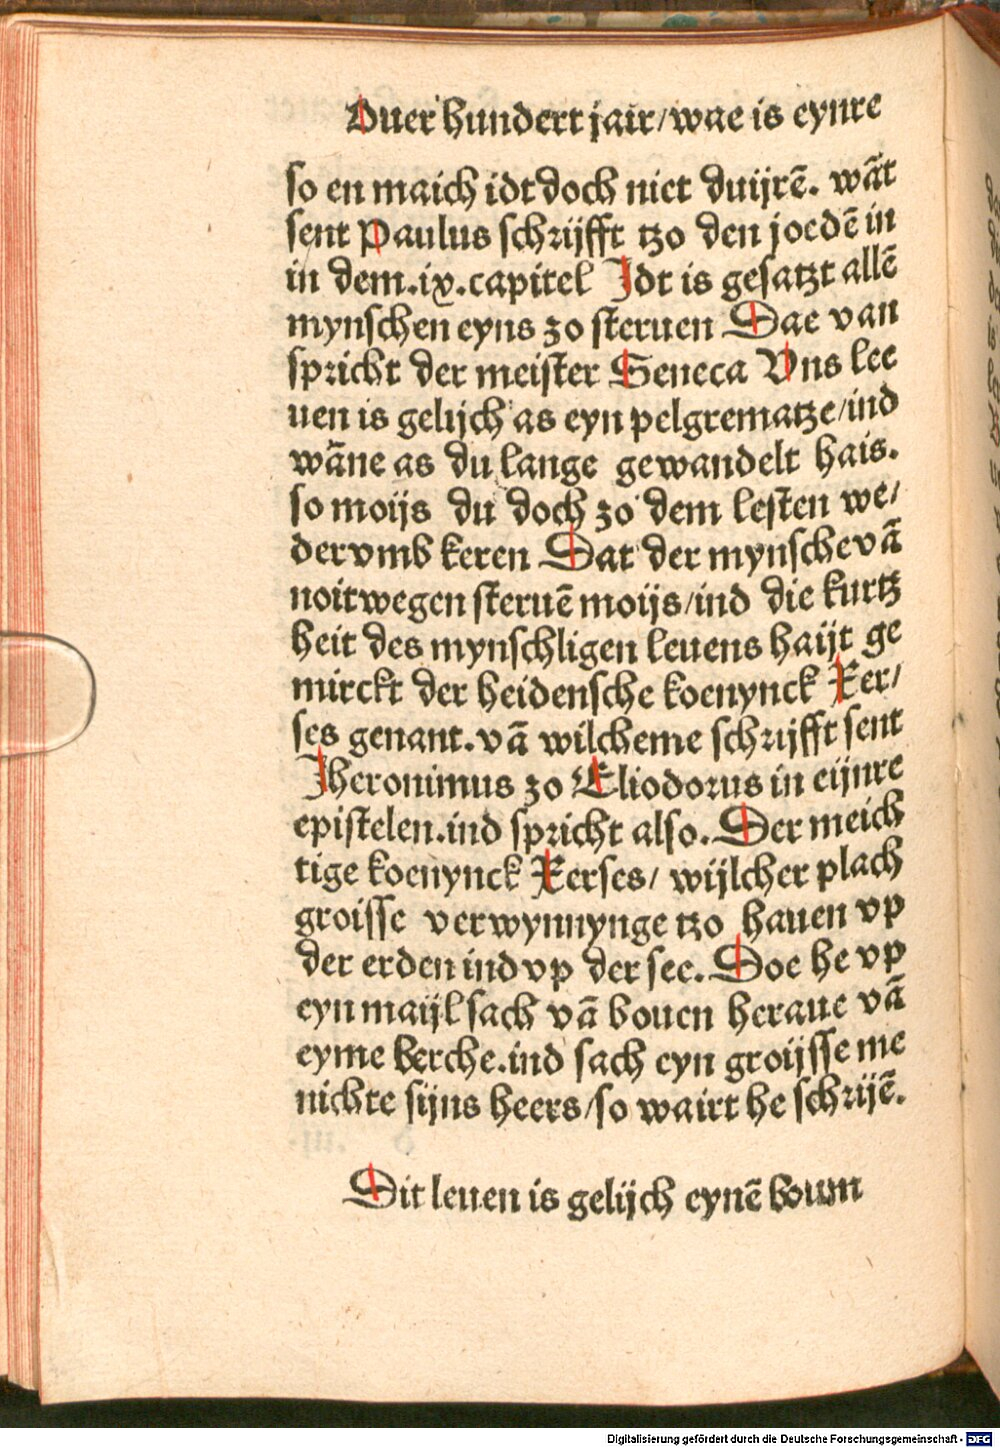 Ouer hundert jair/wae is eynre
so en maich idt doch niet duijrē. wāt
sent Paulus schrijfft tzo den joedē in
in dem.ix.capitel Idt is gesatzt allē
mynschen eyns zo steruen Dae van
spricht der meister Seneca Vns lee
uen is gelijch as eyn pelgrematze/ind
wāne as du lange gewandelt hais.
so moijs du doch zo dem lesten we/
der vmb keren Dat der mynsche vā
noitwegen steruē moijs/ind die kurtz
heit des mynschligen leuens haijt ge
mirckt der heidensche koenynck Xer/
ses genant.vā wilcheme schrijfft sent
Jheronimus zo Eliodorus in eijnre
epistelen.ind spricht also. Der meich
tige koenynck Xerses/ wijlcher plach
groisse verwynnynge tzo hauen vp
der erden ind vp der see. Doe he vp
eyn maijl sach vā bouen heraue vā
eyme berche.ind sach eyn groijsse me
nichte sijns heers/so wairt he schrijē.
Dit leuen is gelijch eynē boum
Digitalisierung gefördert durch die Deutsche Forschungsgemeinschaft - DFG